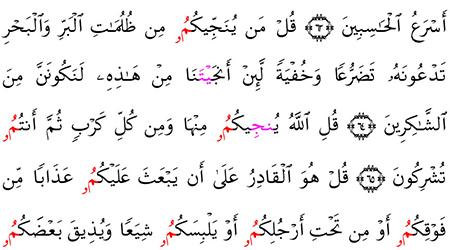 أَسْرَعُ ٱلْحَٰسِبِينَ ٦٣ قُلْ مَن يُنَجِّيكُمُۥ مِن ظُلُمَٰتِ ٱلْبَرِّ وَٱلْبَحْرِ
تَدْعُونَهُۥ تَضَرُّعًا وَخُفْيَةً لَّئِنْ أَنجَيْتَنَا مِنْ هَٰذِهِۦ لَنَكُونَنَّ مِنَ
ٱلشَّٰكِرِينَ ٦٤ قُلِ ٱللَّهُ يُنجِيكُمُۥ مِنْهَا وَمِن كُلِّ كَرْبٍ ثُمَّ أَنتُمُۥ
تُشْرِكُونَ ٦٥ قُلْ هُوَ ٱلْقَادِرُ عَلَىٰ أَن يَبْعَثَ عَلَيْكُمُۥ عَذَابًا مِّن
فَوْقِكُمُۥ أَوْ مِن تَحْتِ أَرْجُلِكُمُۥ أَوْ يَلْبِسَكُمُۥ شِيَعًا وَيُذِيقَ بَعْضَكُمُۥ